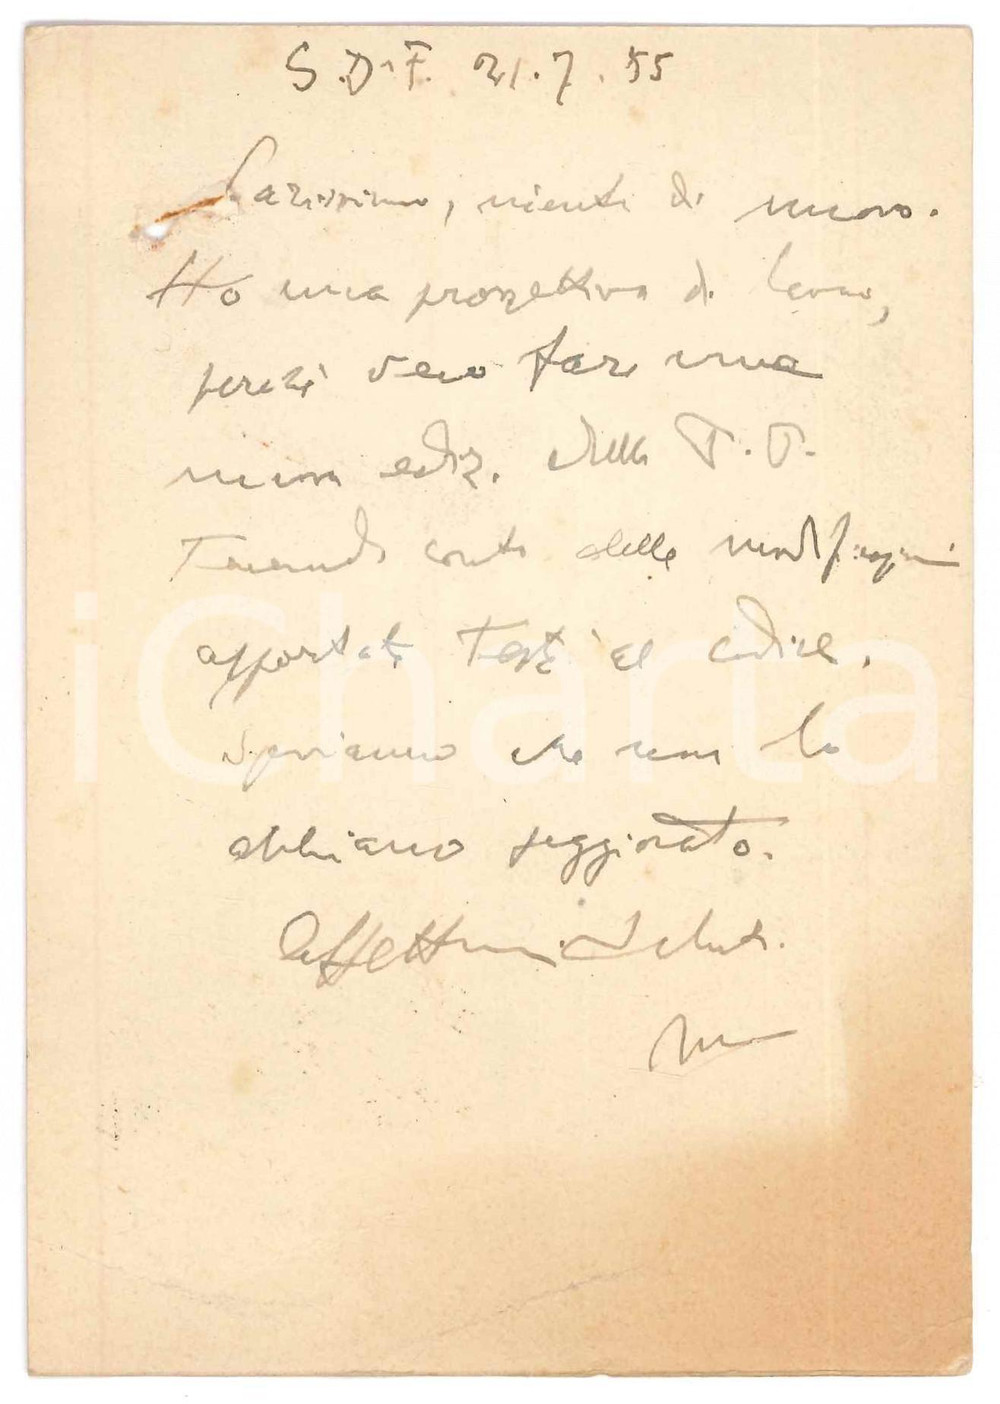 S.D.F. 21.7.55
Carissimo, niente di nuovo.
Ho una prospettiva di lavoro,
perché devo fare una
nuova ediz. della P.P.
Tenendo conto delle modificazioni
apportate testé al codice.
Speriamo che non lo
abbiano peggiorato.
Affettuosi saluti.
iCharta